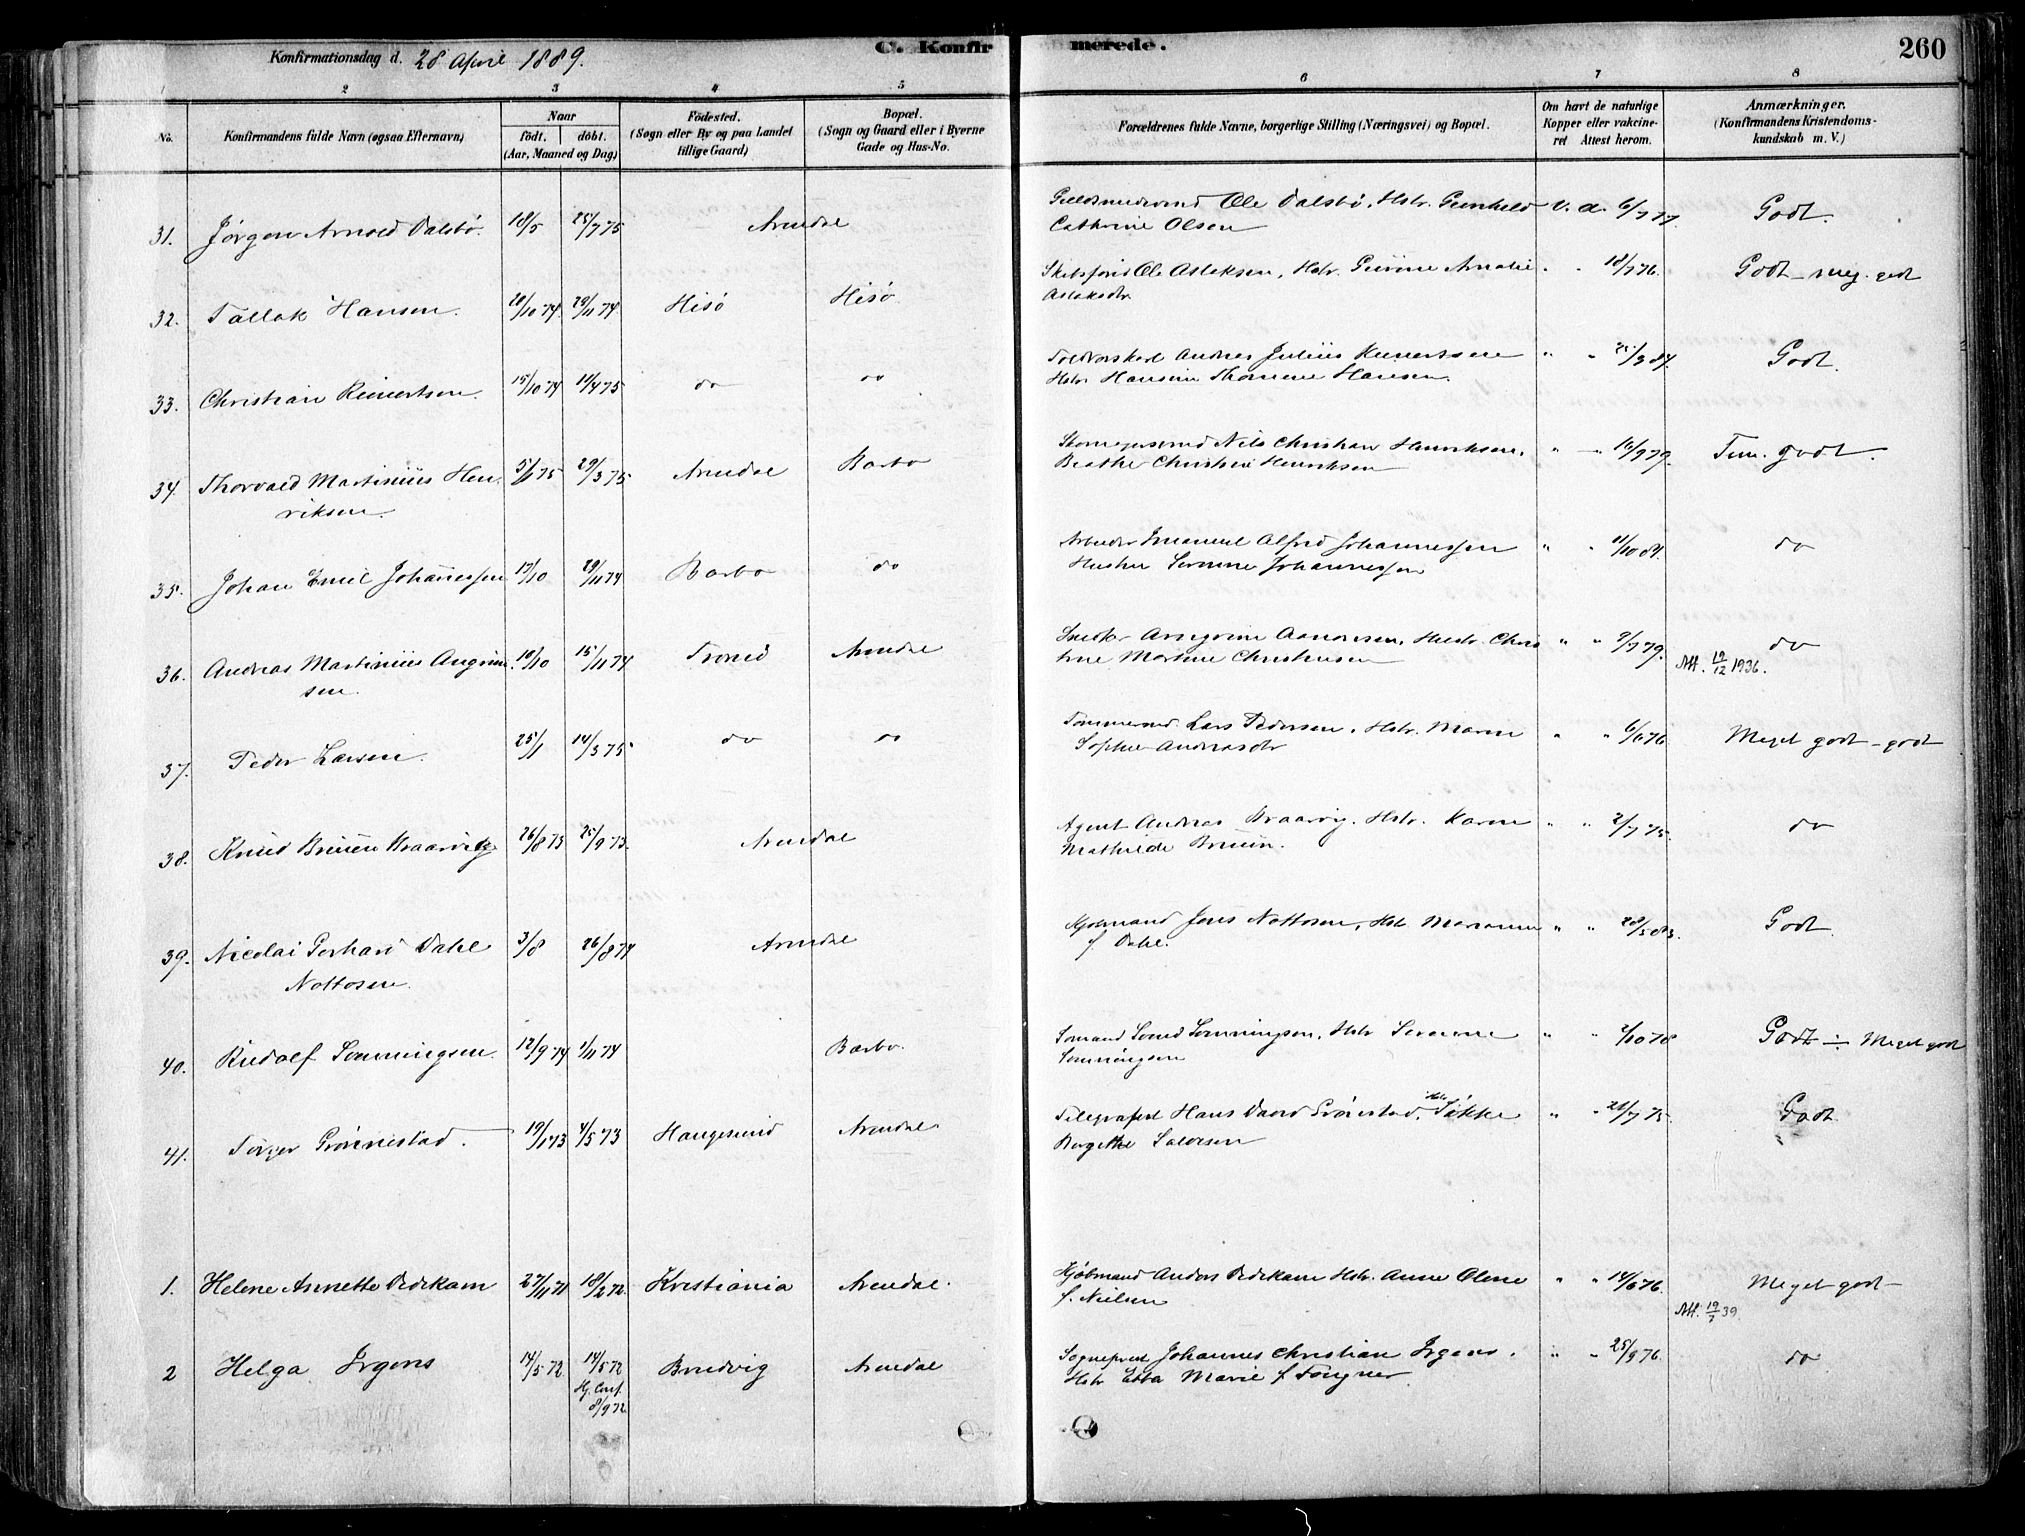 Konfirmationsdag d. 28 April 1889.
C. Konfirmerede.
260
1 2 3 4 5 6 7 8
No. Konfirmandens fulde Navn (ogsaa Efternavn) Naar født. døbt. (Aar, Maaned og Dag) Fødested. (Sogn eller By og paa Landet tillige Gaard) Bopæl. (Sogn og Gaard eller i Byerne Gade og Hus-No. Forældrenes fulde Navne, borgerlige Stilling (Næringsvei) og Bopæl. Om havt de naturlige Kopper eller vakcineret Attest herom. Anmærkninger. (Konfirmandens Kristendomskundskab m. V.)
31. Jørgen Arnold Dalsbø. 18/5 25/7 75 Arendal Ole Dalsbø, Hstr. Gunhild V. a. 6/7 77. Godt.
Cathrine Olsen
32. Tallak Hansen. 20/10 74. 29/11 74 Hisø Hisø Ole Aslaksen, Hstr. Amalie " 18/7 76. Godt - meg. godt
Aslaksdtr.
33. Christian Reinertsen 15/10 74 11/4 75 do do Andreas Julius Reinertsen " " 25/3 84. Godt.
Hstr. Hansine Thomine Hansen.
34. Thorvald Martinius Hen 5/1 75 29/3 75 Arendal Barbo Nils Christian Henriksen, " 16/9 79. Tem. godt.
riksen. Beathe Christine Henriksen
35. Johan Emil Johannessen 17/10 29/11 74 Barbo do Arbeider Emanuel Alfred Johannessen " " 11/10 84. do
Hustru Johannessen
36. Andreas Martinius 10/10 15/11 74 Tromø Arendal Snedker Hustr. Chris " " 9/7 79. do
sen. tine Martine Christensen Att. 19/12 1936.
37. Peder Larsen. 25/1 14/3 75 do do Tømmermd. Lars Pedersen, Hstr. Maren " " 6/6 76 Meget godt - godt
Sophie Andreasdtr
38. Knud Bruun Braarvig 26/8 73 25/9 73. Arendal Agent Andreas Braarvig. Hstr. Karen " " 2/7 75. do
Mathilde Bruun.
39. Nicolai Gerhard Dahl 3/8 26/8 74 Arendal Kjøbmand Jens Nottosen, Hst. " " 28/5 83. Godt.
Nottosen. f. Dahl.
40. Rudolf Sønningsen. 12/9 74 1/11 74 Barbo. Sømand Sønningsen, Hstr " " 2/10 78 Godt ÷ Meget godt
Sønningsen
41. Tørger Grønnestad. 19/1 73 4/5 73 Haugesund Arendal Telegrafist Hans David Grønnestad, Hstr. " 21/7 75. Godt
Bergethe Salvesen
1. Helene Annette Dedekam 27/11 71 18/2 72. Kristiania Arendal. Kjøbmand Anders Dedekam Hstr. Anne Olene " " 14/6 76. Meget godt
f. Nielsen Att. 19/7 39.
2 Helga Irgens 14/5 72. 14/5 72 Brudvig Arendal Sogneprest Johannes Christian Irgens. " " 25/9 76. do
Hj. Conf. Hstr Ebba Marie f. Fougner.
8/9 72.